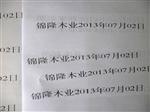 锦隆木业2013年07月02日
锦隆木业2013年07月02日
锦隆木业2013年07月02日
锦隆木业2013年07月02日
锦隆木业2013年07月02日